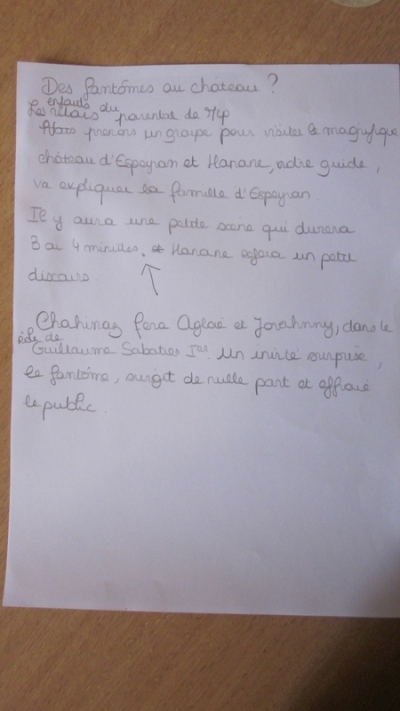 Des fantômes au château ?
Les enfants du
relais parental de
Nous prenons un groupe pour visiter le magnifique
château d'Espeyran et Hanane, votre guide,
va expliquer la famille d'Espeyran
Il y aura une petite scène qui durera
3 ai 4 minutes. Hanane fera un petit
discours
Chahinaz fera Aglaé et Jorahnny, dans le
rôle de
Guillaume Sabatier Ier. Un invité surprise,
le fantôme, surgit de nulle part et effraie
le public.